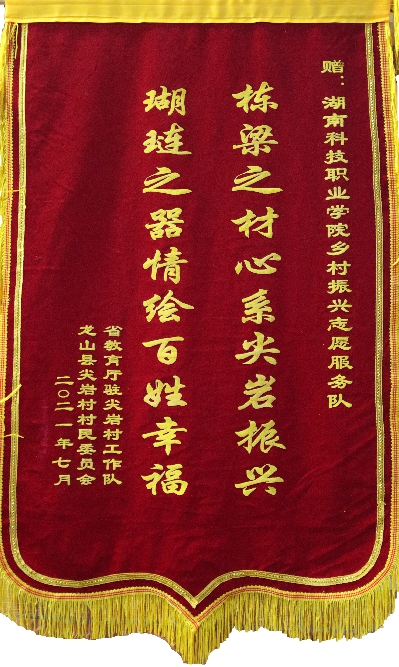 赠：湖南科技职业学院乡村振兴志愿服务队
栋梁之材心系尖岩振兴
瑚琏之器情绘百姓幸福
省教育厅驻尖岩村工作队
龙山县尖岩村村民委员会
二〇二一年七月